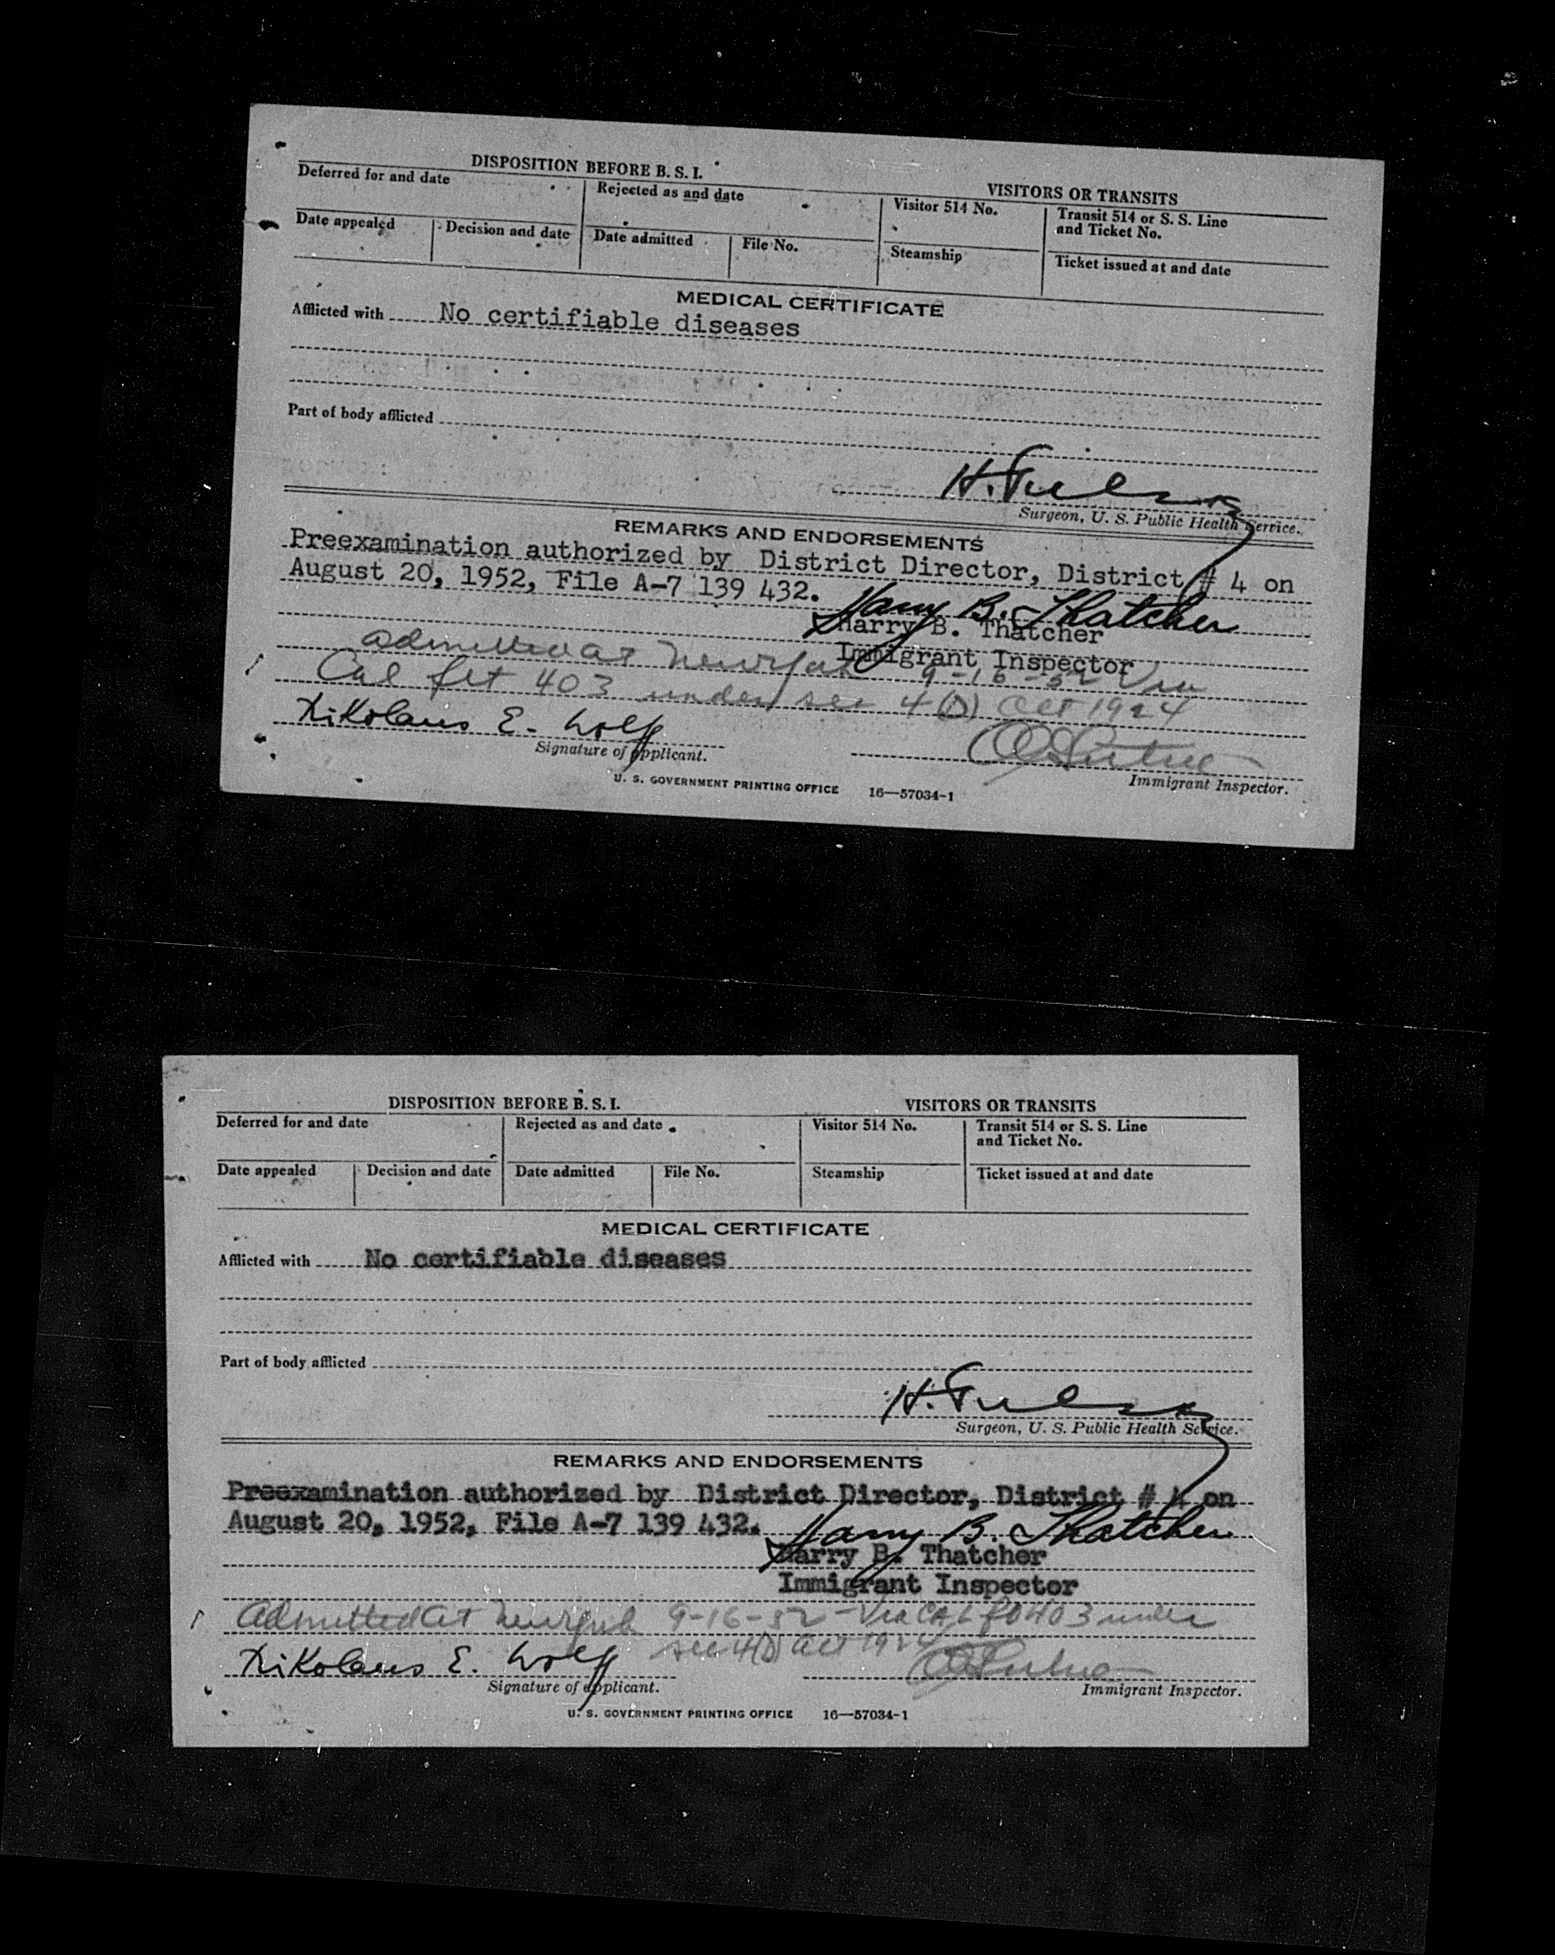 DISPOSITION BEFORE B. S. I.
VISITORS OR TRANSITS
Deferred for and date
Rejected as and date
Visitor 514 No.
Transit 514 or S. S. Line
and Ticket No.
Date appealed
Decision and date
Date admitted
File No.
Steamship
Ticket issued at and date
MEDICAL CERTIFICATE
Afflicted with No certifiable diseases
Part of body afflicted
H.
Surgeon, U. S. Public Health Service.
REMARKS AND ENDORSEMENTS
Preexamination authorized by District Director, District # 4 on
August 20, 1952, File A-7 139 432.
Harry B. Thatcher
Harry B. Thatcher
Immigrant Inspector
Admitted at Newyork 9-16-52 Via
Cal flt 403 under sec 4(D) Act 1924
Nikolaus E. Wolf
Signature of applicant.
Immigrant Inspector.
U. S. GOVERNMENT PRINTING OFFICE 16—57034-1
DISPOSITION BEFORE B. S. I.
VISITORS OR TRANSITS
Deferred for and date
Rejected as and date
Visitor 514 No.
Transit 514 or S. S. Line
and Ticket No.
Date appealed
Decision and date
Date admitted
File No.
Steamship
Ticket issued at and date
MEDICAL CERTIFICATE
Afflicted with No certifiable diseases
Part of body afflicted
H.
Surgeon, U. S. Public Health Service.
REMARKS AND ENDORSEMENTS
Preexamination authorized by District Director, District # 4 on
August 20, 1952, File A-7 139 432.
Harry B. Thatcher
Harry B. Thatcher
Immigrant Inspector
Admitted at Newyork 9-16-52 - Via CAL 403 under
sec 4(D) Act 1924
Nikolaus E. Wolf
Signature of applicant.
Immigrant Inspector.
U. S. GOVERNMENT PRINTING OFFICE 16—57034-1